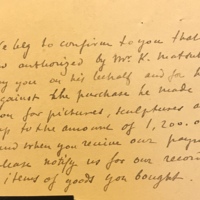 We beg to confirm to you that
authorized by Mr. K. Matsu
you on his behalf and for h
against the purchase he made
for pictures, sculptures a
up to the amount of 1,200.0
and when you receive our paym
please notify us for our recor
items of goods you bought.